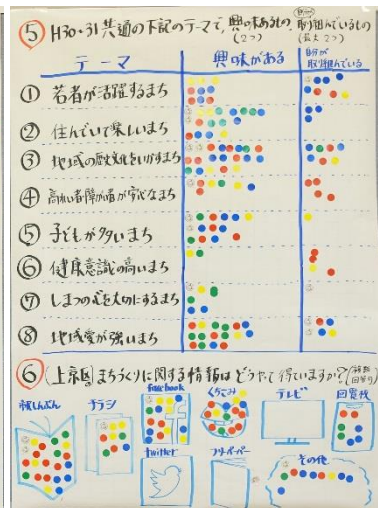 ⑤ H30・31共通の下記のテーマで、興味あるもの(2つ)、自分が取り組んでいるもの(最大2つ)
テーマ 興味がある 自分が取り組んでいる
① 若者が活躍するまち
② 住んでいて楽しいまち
③ 地域の歴史文化をいかすまち
④ 高齢者障がい者が安心なまち
⑤ 子どもが多いまち
⑥ 健康意識の高いまち
⑦ しまつの心を大切にするまち
⑧ 地域愛が強いまち
⑥ (上京区)まちづくりに関する情報はどうやって得ていますか?(複数回答可)
市民しんぶん チラシ facebook くちこみ テレビ 回覧板
twitter フリーペーパー その他